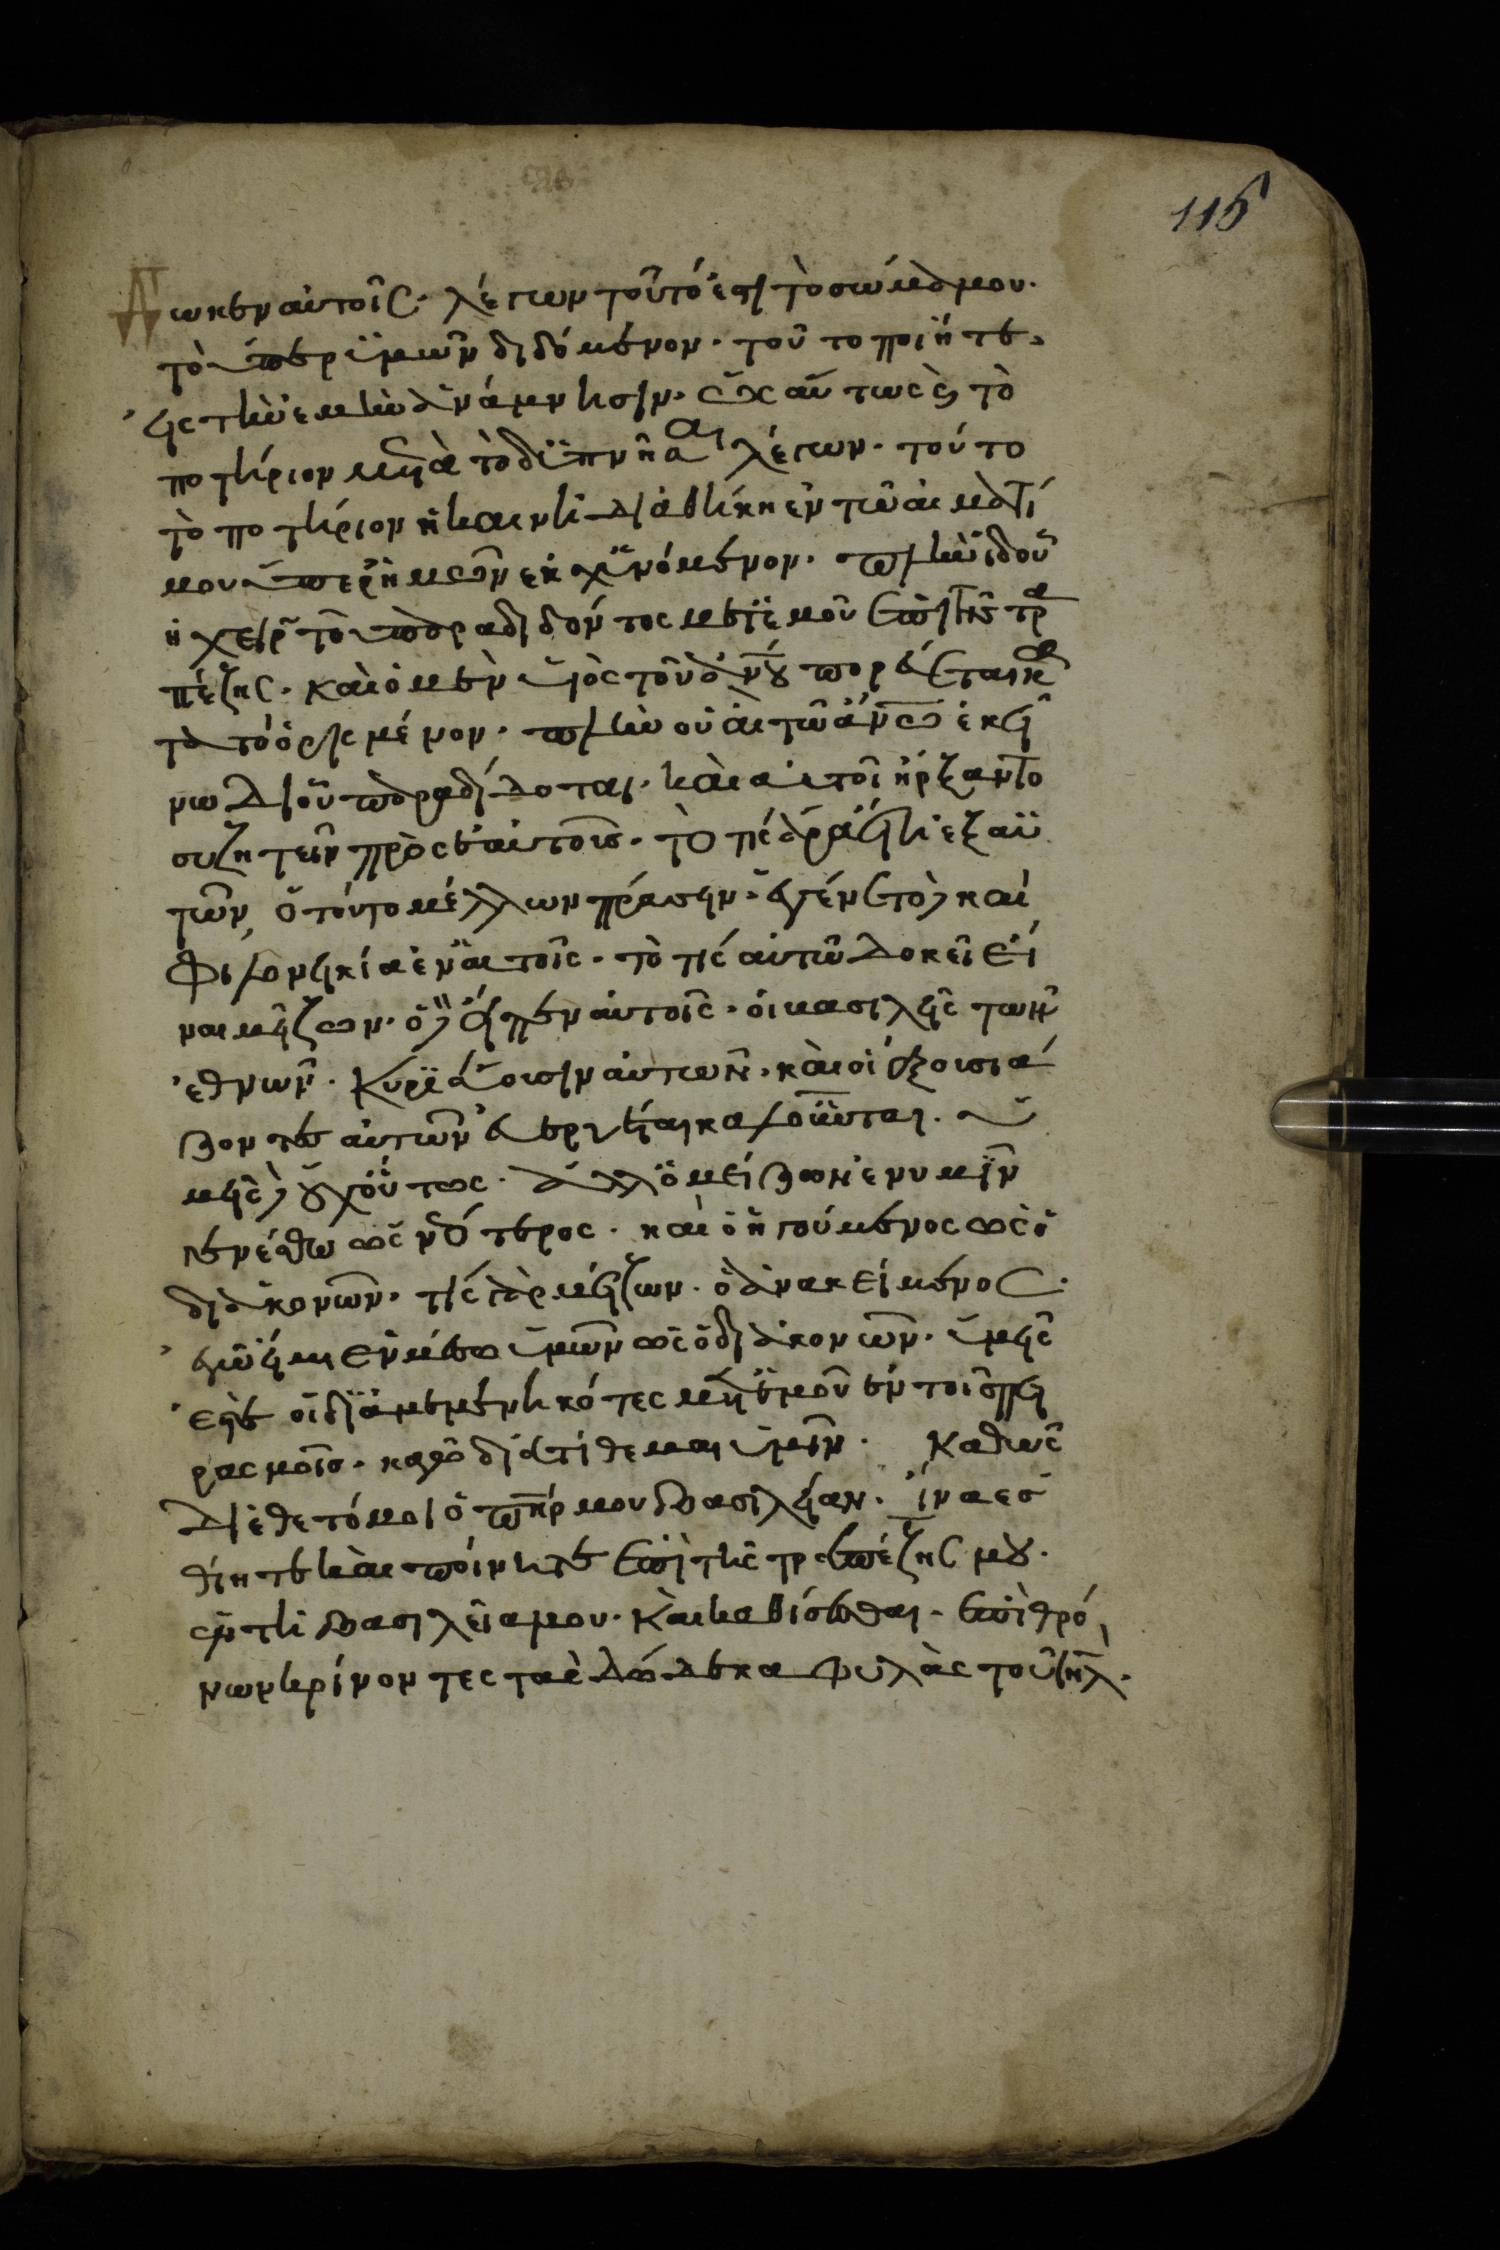 115
Δωκεν αὐτοῖς· λέγων τοῦτό ἐστι τὸ σώμα μου·
τὸ ὑπερ ὑμῶν διδόμενον· τοῦτο ποιῆτε·
εἰς τὴν ἐμὴν ἀνάμνησιν· ὡσαύτως ϗ τὸ
ποτήριον μετὰ τὸ διπνῆσαι λέγων· τούτο
τὸ ποτήριον ἡ καινὴ διαθήκη ἐν τῶ αἱματί
μου ὑπερ ἡμῶν ἐκχϋνόμενον· πλὴν ἰδοῦ
ἡ χεὶρ τοῦ παραδιδόντος μετ ἐμοῦ ἐπὶ τῆς τρα
πέζης· καὶ ὁ μεν υἱὸς τοῦ ἀνου πορεύεται κα
τὰ τὸ ὁρισμένον· πλὴν οὐαὶ τῶ ἀνω ἐκεί
νω δι οὗ παραδίδοται· καὶ αὐτοὶ ἤρξαντο
συζητεῖν πρὸς ἑαυτοῖς· τὸ τίς ἄρα εἴη ἐξ αὐ
τῶν, ὁ τοῦτο μέλλων πράσειν· ἐγένετο δὲ καὶ
φιλονεικία ἐν αὐτοῖς· τὸ τίς αὐτῶν δοκεῖ εἶ
ναι μείζων· ὁ δὲ εἶπεν αὐτοῖς· οἱ βασιλεῖς τῶν
ἐθνῶν· κυριεύουσιν αὐτῶν· καὶ οἱ ἐξουσιά
ζοντες αὐτῶν εὐεργέται καλοῦνται· ὑ
μεῖς δὲ οὐχ οὕτως· ἀλλ ὁ μείζων ἐν υμῖν
γενέσθω ὡς νεότερος· καὶ ὁ ἡγούμενος ὡς ὁ
διακονῶν· τίς γὰρ μείζων· ὁ ἀνακείμενος·
ἐγὼ εἰμι ἐν μέσω ὑμῶν ὡς ὁ διακονῶν· ὑμεῖς
ἐστὲ οἱ διαμεμενηκότες μετ ἐμοῦ ἐν τοῖς πει
ρασμοῖς· καγὼ διατίθεμαι ὑμῖν· Καθὼς
διέθετό μοι ὁ πηρ μου βασιλείαν· ἵνα εσ
θίητε καὶ πίνητε ἐπὶ τῆς τραπέζης μου·
ἐν τῆ βασιλεία μου· καὶ καθίσεσθαι· ἐπὶ θρό
νων κρίνοντες τὰς δώδεκα φυλὰς τοῦ ιηλ·